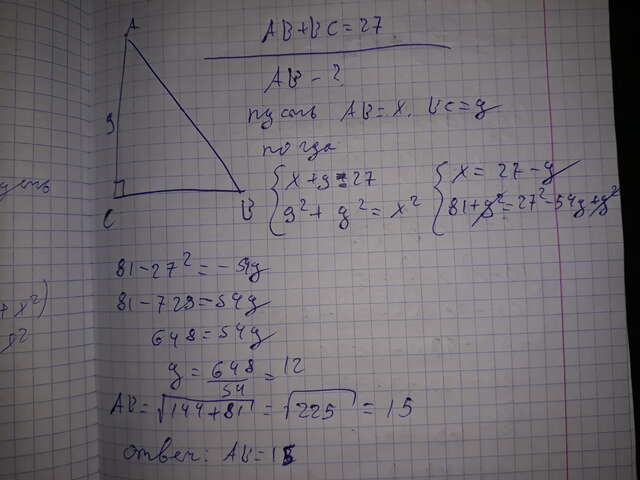 AB+BC=27
AB - ?
пусть AB=x, BC=y
тогда
{x+y=27
{9²+y²=x²
{x=27-y
{81+y²=27²-54y+y²
A
9
C
B
81-27²=-54y
81-729=-54y
648=54y
y=648/54=12
AB=√144+81=√225=15
Ответ: AB=15
+x²)